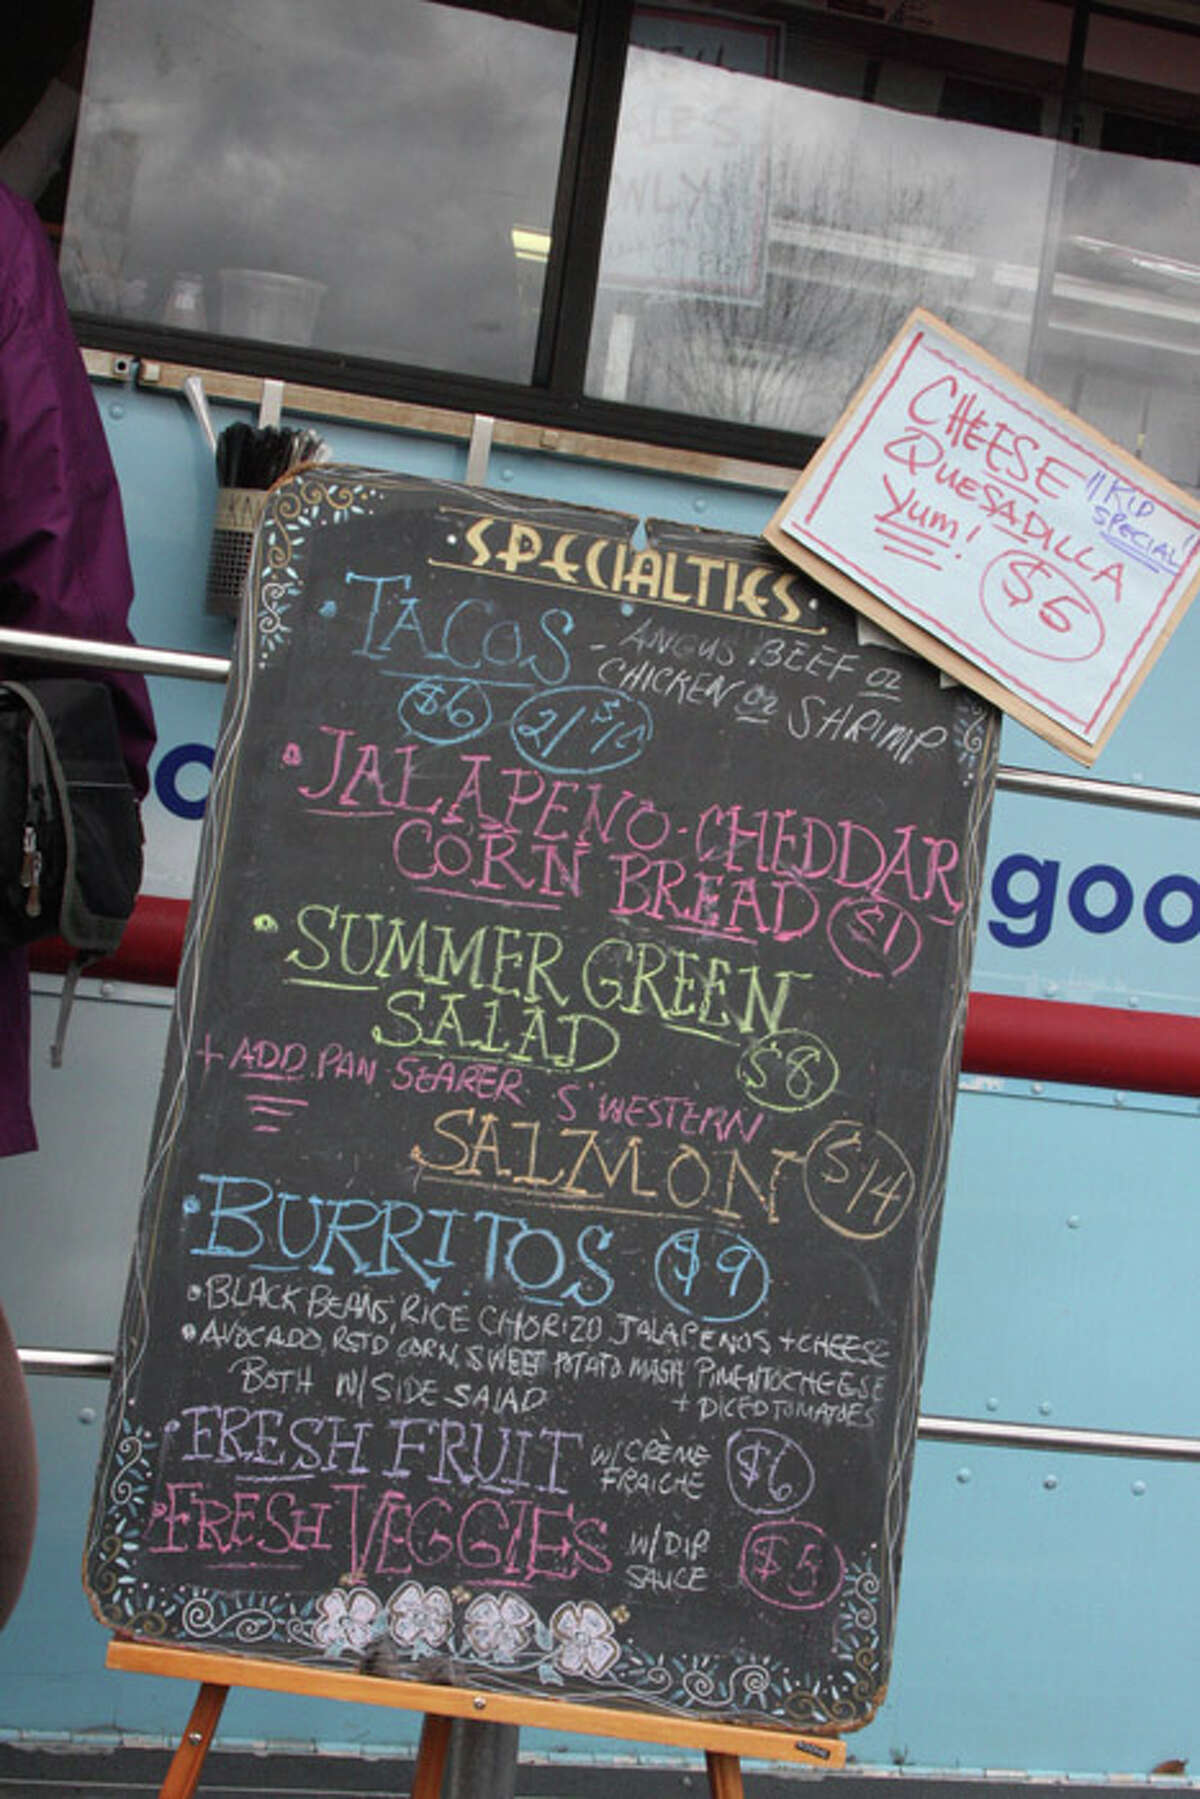 SPECIALTIES
• TACOS - ANGUS BEEF OR
CHICKEN OR SHRIMP
$6
• JALAPENO-CHEDDAR
CORN BREAD $1
• SUMMER GREEN
SALAD $8
+ ADD PAN SEARER S'WESTERN
SALMON $14
• BURRITOS $9
• BLACK BEANS, RICE CHORIZO JALAPENOS + CHEESE
• AVOCADO, RSTD CORN, SWEET POTATO MASH PIMENTO CHEESE
+ DICED TOMATOES
BOTH W/ SIDE SALAD
• FRESH FRUIT W/ CRÈME
FRAICHE $6
• FRESH VEGGIES W/ DIP
SAUCE $5
CHEESE
QUESADILLA
YUM!
$5
"KID
SPECIAL"
goo
ONLY